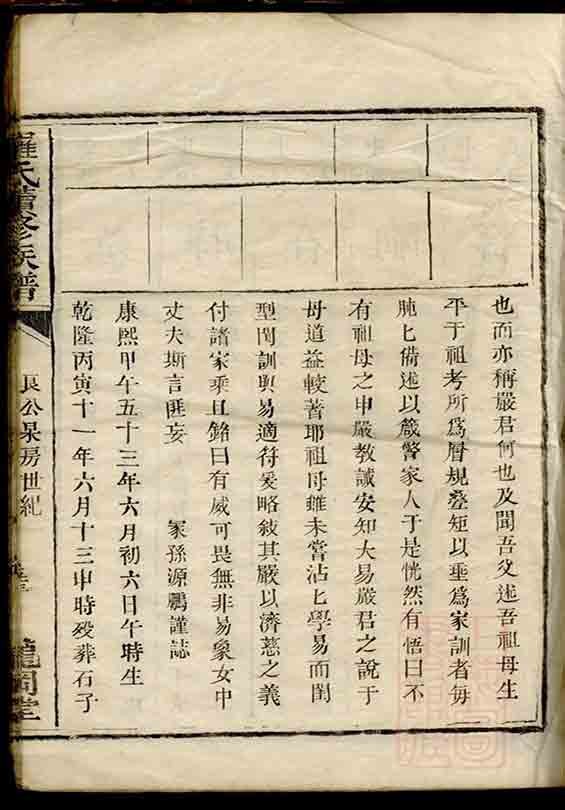 也而亦稱嚴君何也及聞吾父述吾祖母生
平于祖考所爲層規疊矩以垂爲家訓者每
肫匕備述以箴警家人于是恍然有悟曰不
有祖母之申嚴教誡安知大易嚴君之說于
母道益較著耶祖母雖未嘗沾匕學易而閨
型閫訓與易適符爰略敘其嚴以濟慈之義
付諸家乘且銘曰有威可畏無非易象女中
丈夫斯言匪妄 冢孫源鵬謹誌
康熙甲午五十三年六月初六日午時生
乾隆丙寅十一年六月十三申時殁葬石子
羅氏續修族譜
良公杲房世紀